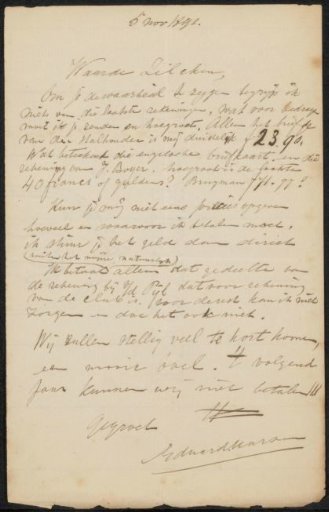 5 Nov 1890.
Waarde Zilcken,
Om je de waarheid te zeggen begrijp ik
niets van die laatste rekeningen, wat voor bedrag
moet ik je zenden en hoegroot. Alleen het briefje
van den Hollander is mij duidelijk f 23.90.
Wat beteekent die engelsche briefkaart en die
rekening van J. Boyer, hoegroot is de
40 francs of guldens? Brugman f 71.77?
Kun je mij niet eens precies opgeven
hoeveel en waarvoor ik betalen moet.
ik stuur je het geld dan direct
(buiten het mijne natuurlijk)
Ik betaal alleen dat gedeelte van
de rekening bij dat voor rekening
van de club is. Voor de rest kan ik niet
zorgen en doe het ook niet.
Wij zullen stellig veel te kort komen,
en mooi ook. 't volgend
jaar kunnen wij niet betalen!!!
Gegroet
tt
Edward